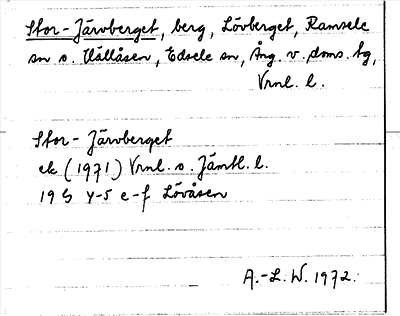 Stor-Järvberget, berg, Lövberget, Ramsele
sn o. Vällåsen, Edsele sn, Ång. v. doms. hg,
Vrnl. l.
Stor-Järvberget
ek (1971) Vrnl. o. Jämtl. l.
19 G 4-5 e-f Lövåsen
A.-L. W. 1972.